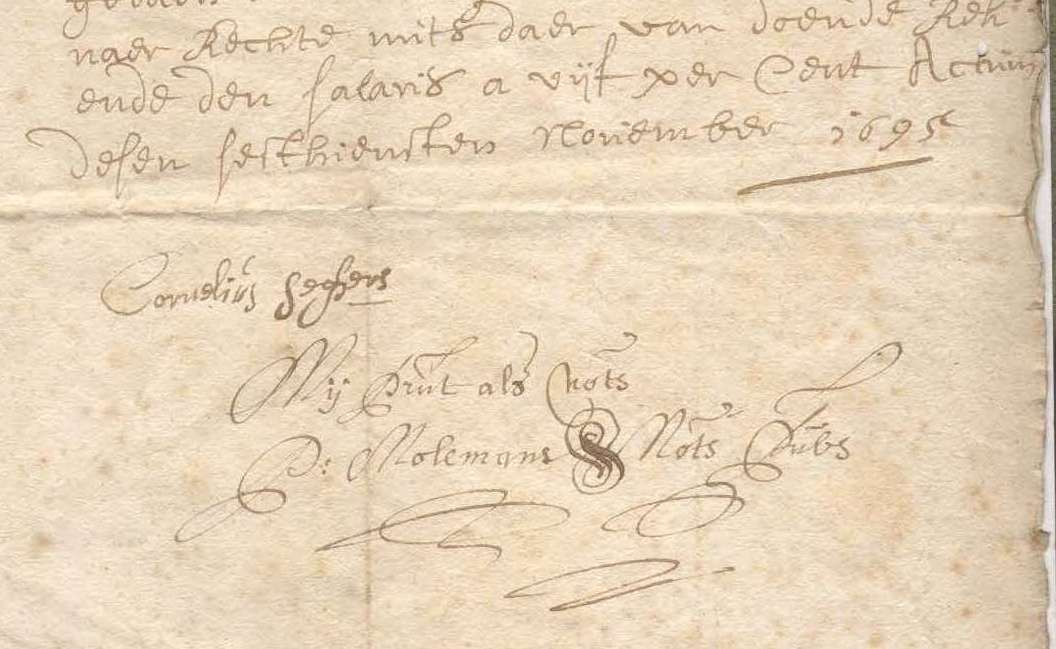 naer Rechte mits daer van doende Rek
ende den salaris a vijf per Cent Actum
desen sesthiensten November 1695
Cornelius Seghers
Mij Prnt als Nots
P: Molemans Nots Pubs